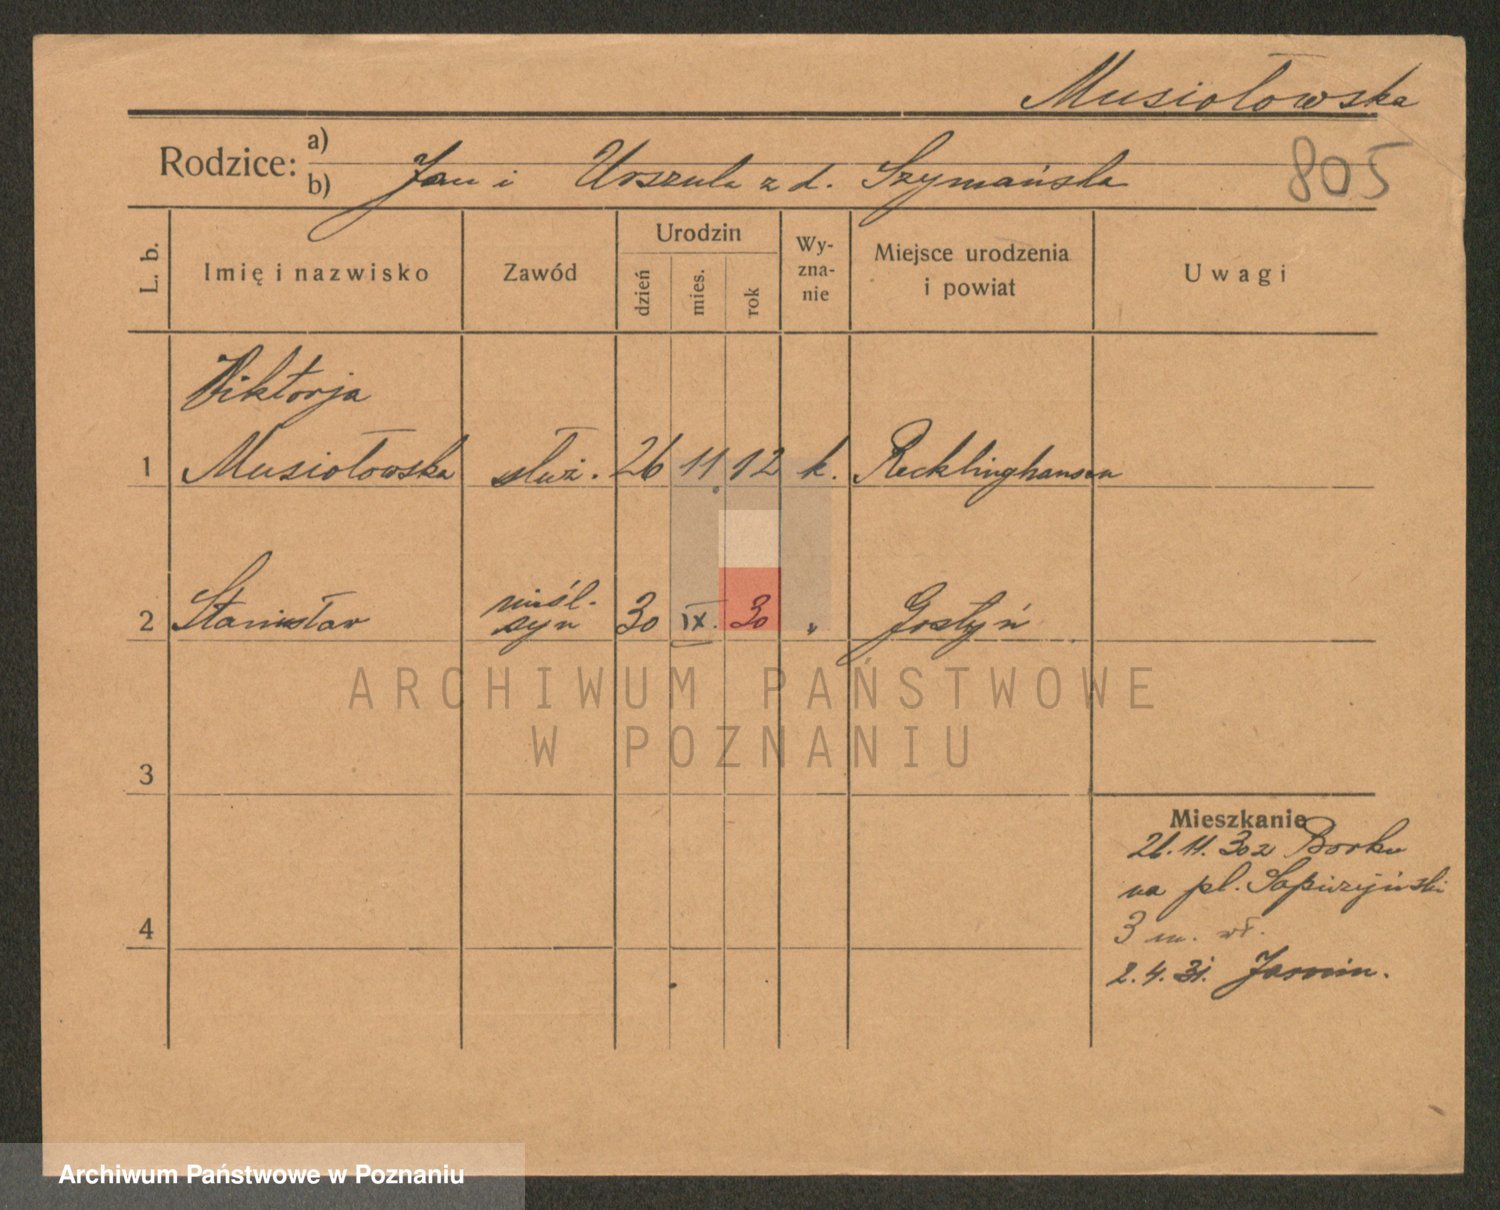 Musiołowska
Rodzice: a)
b) Jan i Urszula z d. Szymańska
805
L. b.
Imię i nazwisko
Zawód
Urodzin
dzień
mies.
rok
Wy-
zna-
nie
Miejsce urodzenia
i powiat
Uwagi
Wiktorja
1 Musiołowska służ. 26 11. 12 k. Recklinghausen
nieśl.
2 Stanisław syn 30 IX. 30 „ Gostyń
3
4
Mieszkanie
26.11.30 z Borku
na pl. Sapieżyński
3 m. wł.
2.4.31.
ARCHIWUM PAŃSTWOWE
W POZNANIU
Archiwum Państwowe w Poznaniu